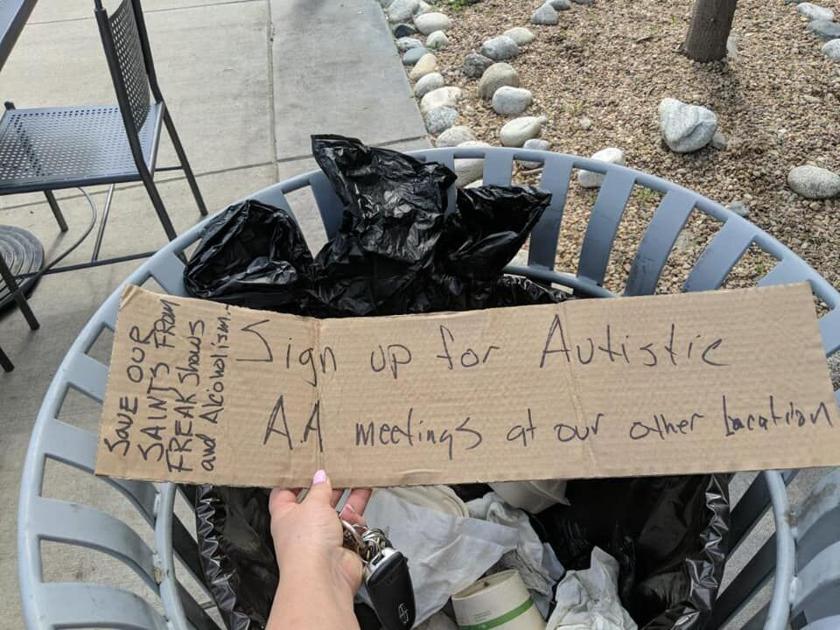 SAVE OUR
SAINTS FROM
FREAK SHOWS
and Alcoholism.
Sign up for Autistic
AA meetings at our other location